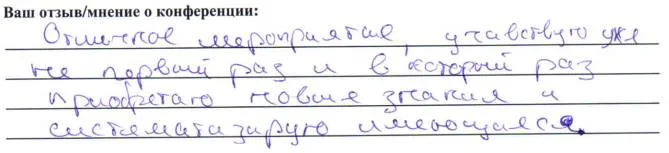 Ваш отзыв/мнение о конференции:
Отличное мероприятие, учавствую уже
не первый раз и в который раз
приобретаю новые знания и
систематизирую имеющиеся.